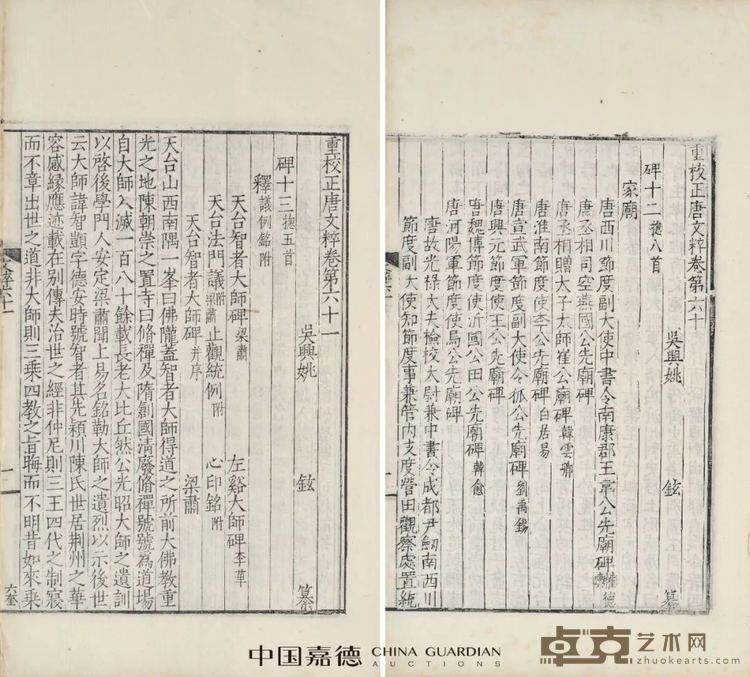 重校正唐文粹卷第六十
吳興姚 鉉 纂
碑十二 摠八首
家廟
唐西川節度副大使中書令南康郡王韋公先廟碑
唐丞相司空燕國公先廟碑
唐丞相贈太子太師崔公廟碑 韓雲卿
唐淮南節度使李公先廟碑 白居易
唐宣武軍節度副大使令狐公先廟碑 劉禹錫
唐興元節度使王公先廟碑
唐魏博節度使沂國公田公先廟碑 韓愈
唐河陽軍節度使烏公先廟碑
唐故光祿大夫檢校太尉兼中書令成都尹劒南西川
節度副大使知節度事兼管內支度營田觀察處置統
重校正唐文粹卷第六十一
吳興姚 鉉 纂
碑十三 摠五首
釋 議例銘附
天台智者大師碑 梁肅 左谿大師碑 李華
天台法門議 梁肅附 止觀統例附 心印銘附
天台智者大師碑 并序 梁肅
天台山西南隅一峯曰佛隴蓋智者大師得道之所前大佛教重
光之地陳朝崇之置寺曰脩禪及隋創國清廢脩禪號號為道場
自大師入滅一百八十餘載長老大比丘然公光昭大師之遺訓
以啓後學門人安定梁肅聞上易名銘勒大師之遺烈以示後世
云大師諱智顗字德安時號智者其先潁川陳氏世居荆州之華
容感緣應迹載在別傳夫治世之經非仲尼則三王四代之制寢
而不章出世之道非大師則三乘四教之旨晦而不明昔如來乘
中国嘉德 CHINA GUARDIAN
AUCTIONS
卓克艺术网
zhuokearts.com